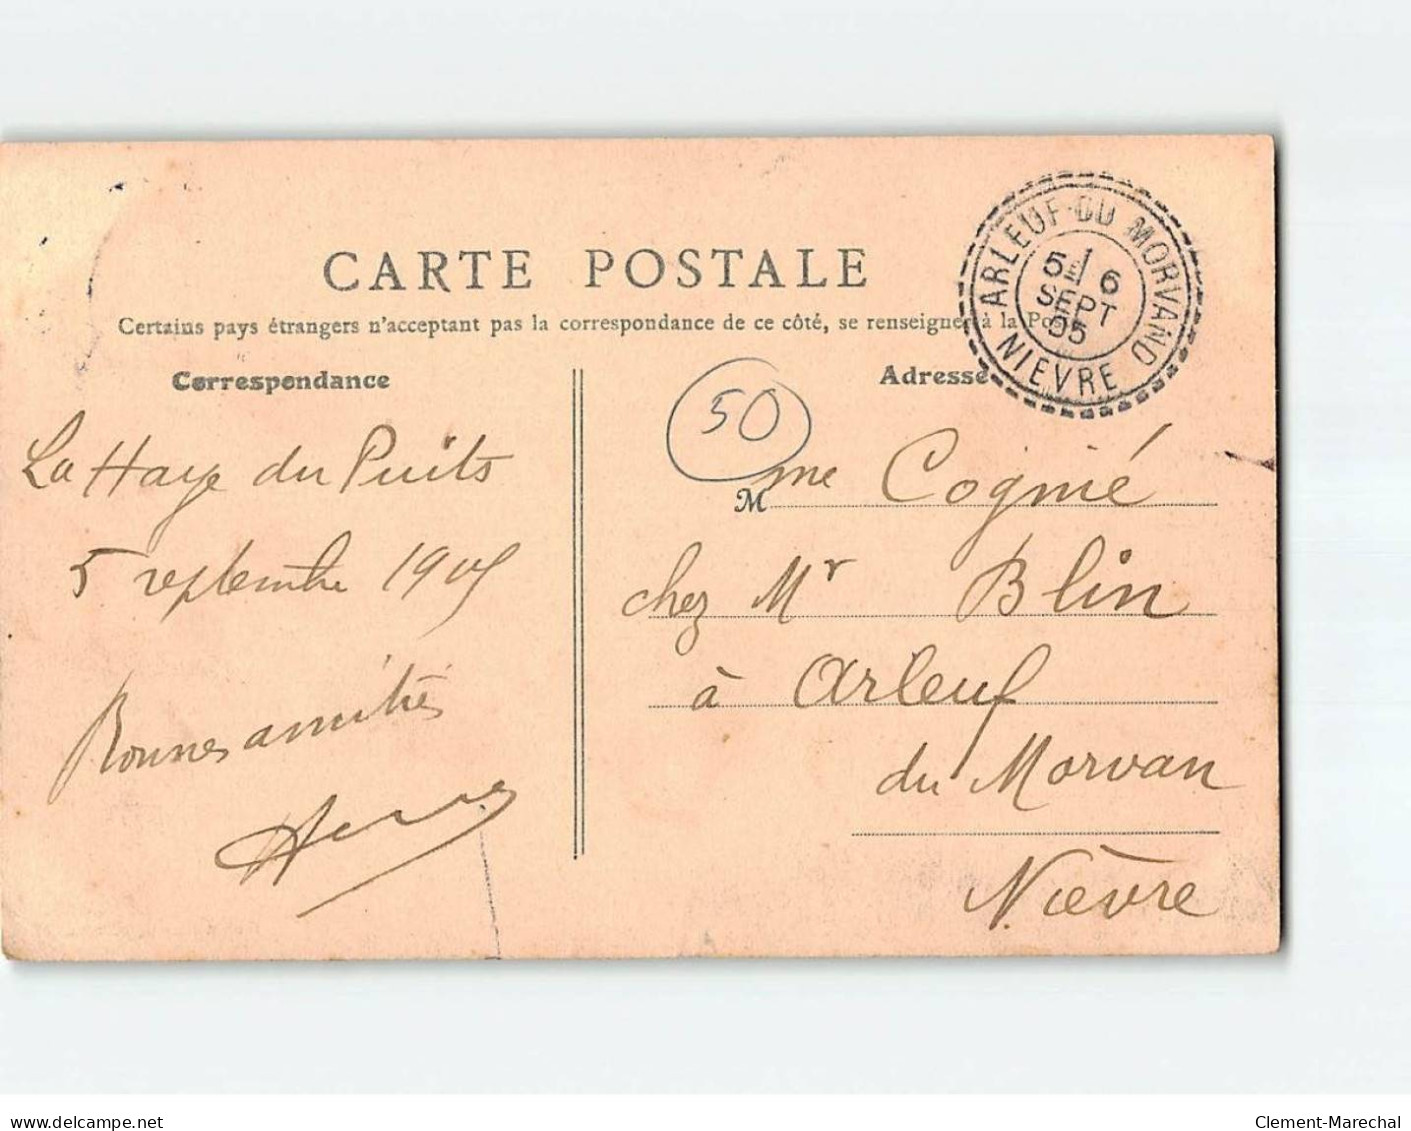 CARTE POSTALE
Certains pays étrangers n'acceptant pas la correspondance de ce côté, se renseigner à la Po
Correspondance
Adresse
ARLEUF-DU MORVAND
5 / 6
SEPT
05
NIEVRE
50
La Haye du Puits
5 septembre 1905
Bonnes amitiés
Mme Cogné
chez Mr Blin
à Arleuf
du Morvan
Nièvre
www.delcampe.net
Clement-Marechal